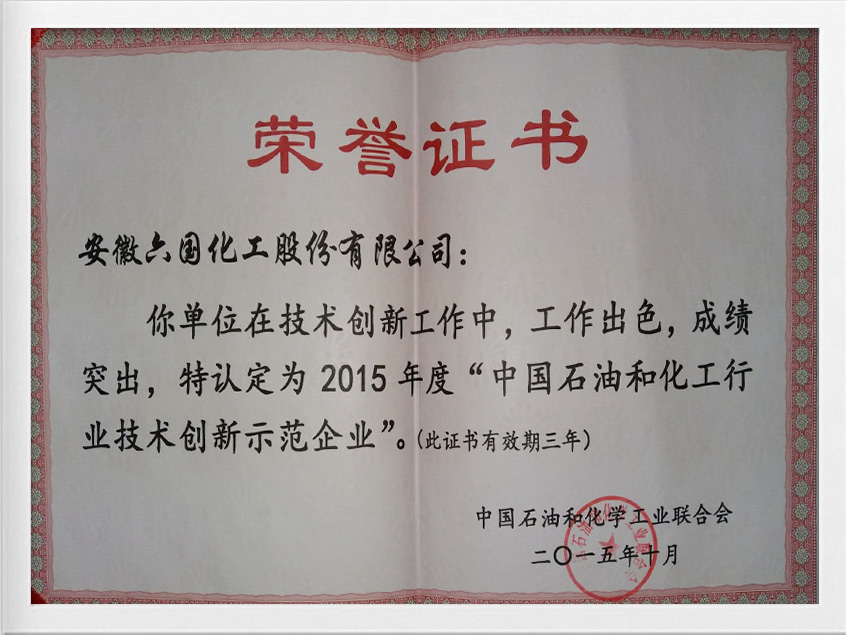 荣誉证书
安徽六国化工股份有限公司：
你单位在技术创新工作中，工作出色，成绩
突出，特认定为 2015 年度“中国石油和化工行
业技术创新示范企业”。（此证书有效期三年）
中国石油和化学工业联合会
二〇一五年十月